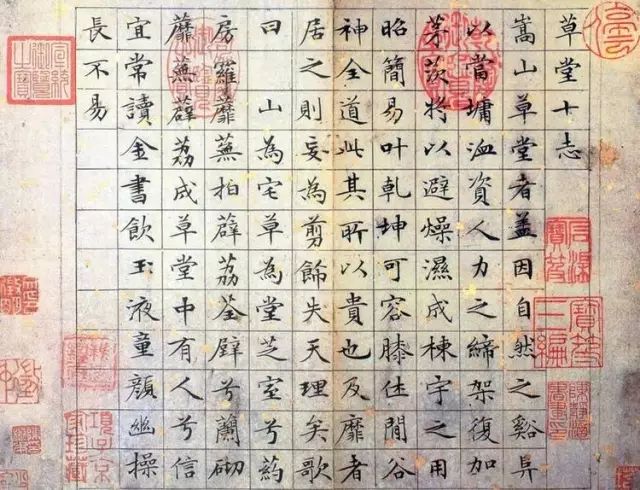 草堂十志
嵩山草堂者盖因自然之谿阜
以當墉洫資人力之締架復加
茅茨將以避燥濕成棟宇之用
昭簡易叶乾坤可容膝休閒谷
神全道此其所以貴也及靡者
居之則妄為剪飾失天理矣歌
曰 山為宅草為堂芝室兮葯
房羅蘼蕪拍薜荔荃壁兮蘭砌
蘼蕪薜荔成草堂中有人兮信
宜常讀金書飲玉液童顏幽操
長不易
寶笈三編
宣統御覽之寶
項子京家珍藏